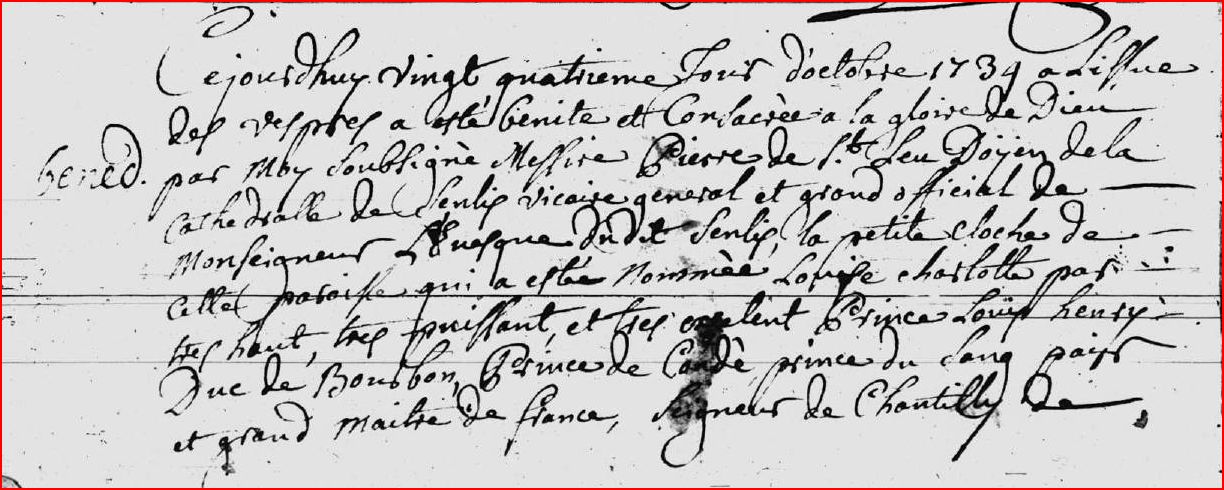 Cejourdhuy vingt quatrieme Jour d'octobre 1734 a Lissue
des vespres a esté benite et Consacrèe a la gloire de Dieu
bened. par Moy soubsignè Messire Pierre de St. Leu Doÿen dela
Cathedralle de Senlis vicaire general et grand official de
Monseigneur L'Evesque dudit Senlis, la petite cloche de
cette paroisse qui a estée Nommèe Louise charlotte par
tres haut, tres puissant, et tres exelent Prince Loüis henry
Duc de Bourbon, Prince de Condè prince du sang pair
et grand maitre de france, seigneur de Chantilly de